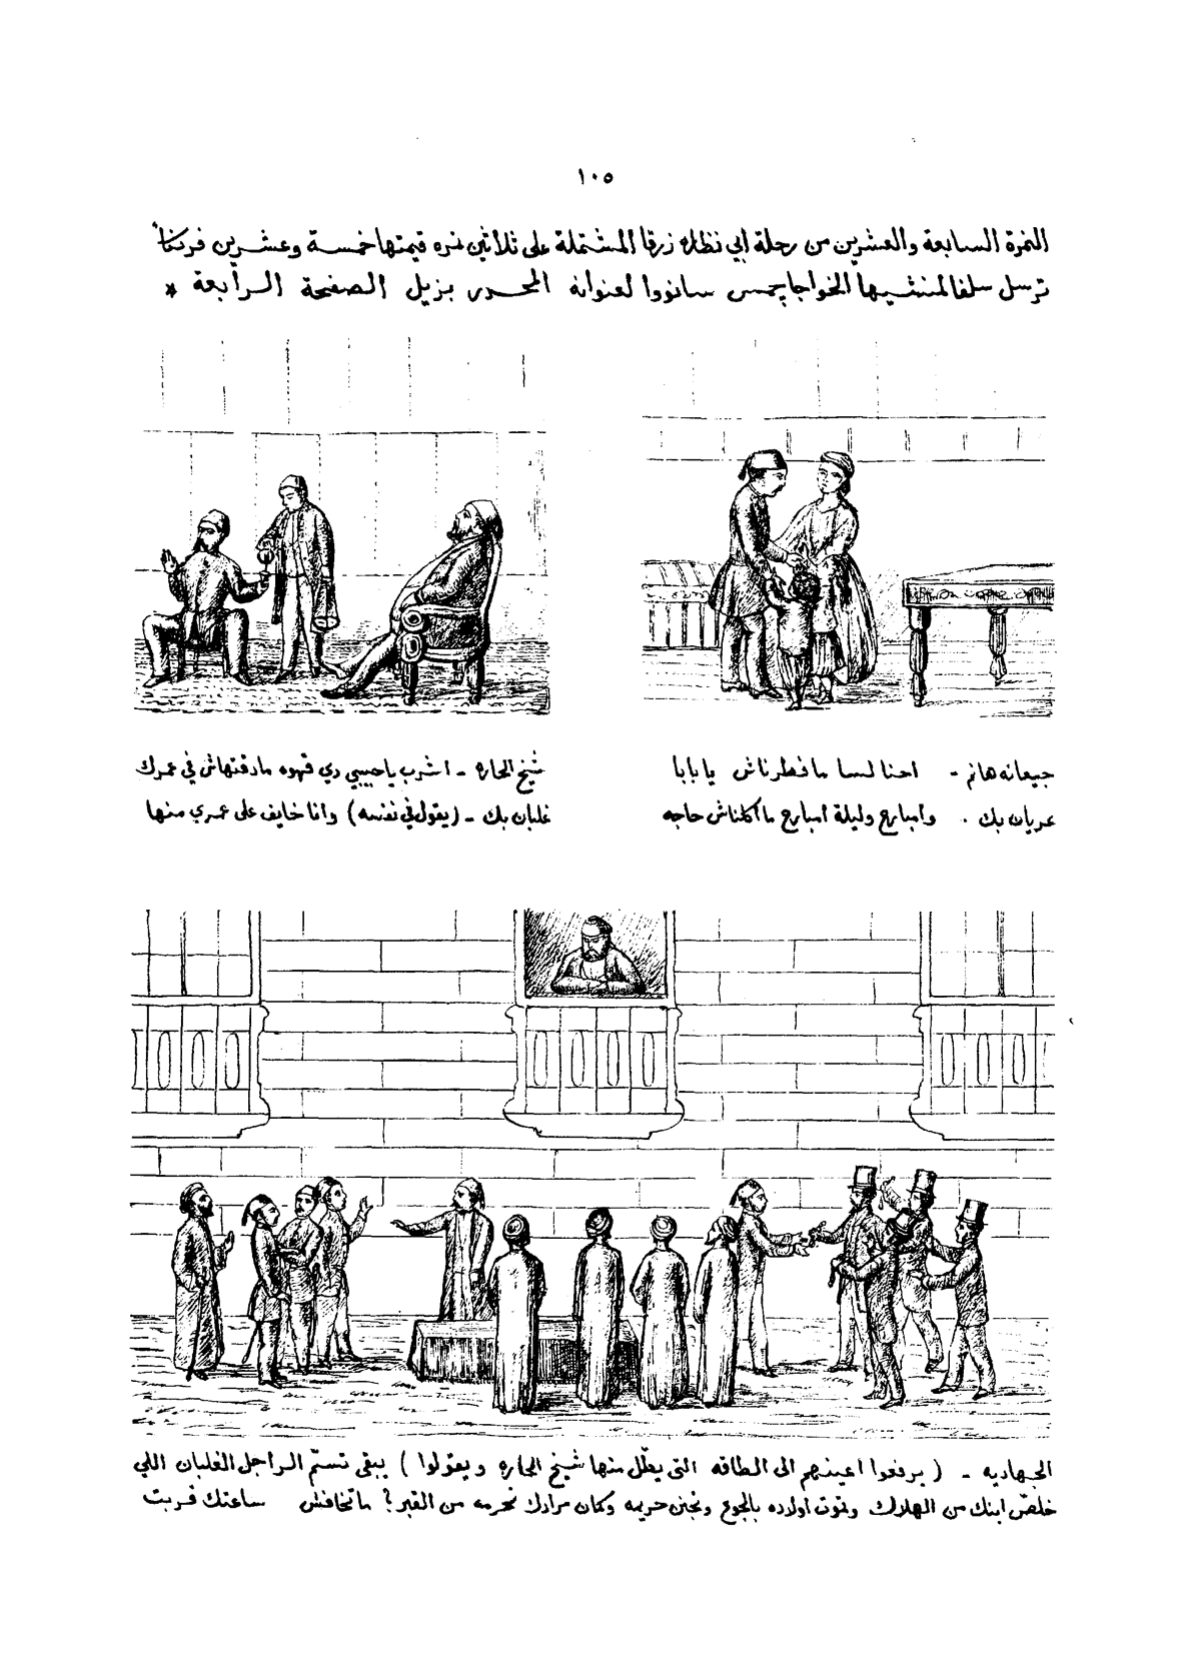 ١٠٥
النمرة السابعة والعشرين من رحلة ابي نظاره زرقا المشتملة على ثلاثين نمره قيمتها خمسة وعشرين فرنكاً
ترسل سلفا لمنشيها الخواجا يمس سانووا لعنوانه المحدر بزيل الصفحة الرابعة *
جيعانه هانم - احنا لسا ما فطرناش يا بابا
عريان بك . وامبارح وليلة امبارح ما اكلناش حاجه
شيخ الحاره - اشرب يا حبيبي دي قهوه ما دقتهاش في عمرك
غلبان بك - (يقول في نفسه) وانا خايف على عمري منها
الجهاديه - (يرفعوا اعينهم الى الطاقه التى يطّل منها شيخ الحاره ويقولوا) يبقى تسمّ الراجل الغلبان اللي
خلصّ ابنك من الهلاك وتموت اولاده بالجوع وتجنن حريمه وكمان مرادك تحرمه من القبر؟ ما تخافش ساعتك قربت